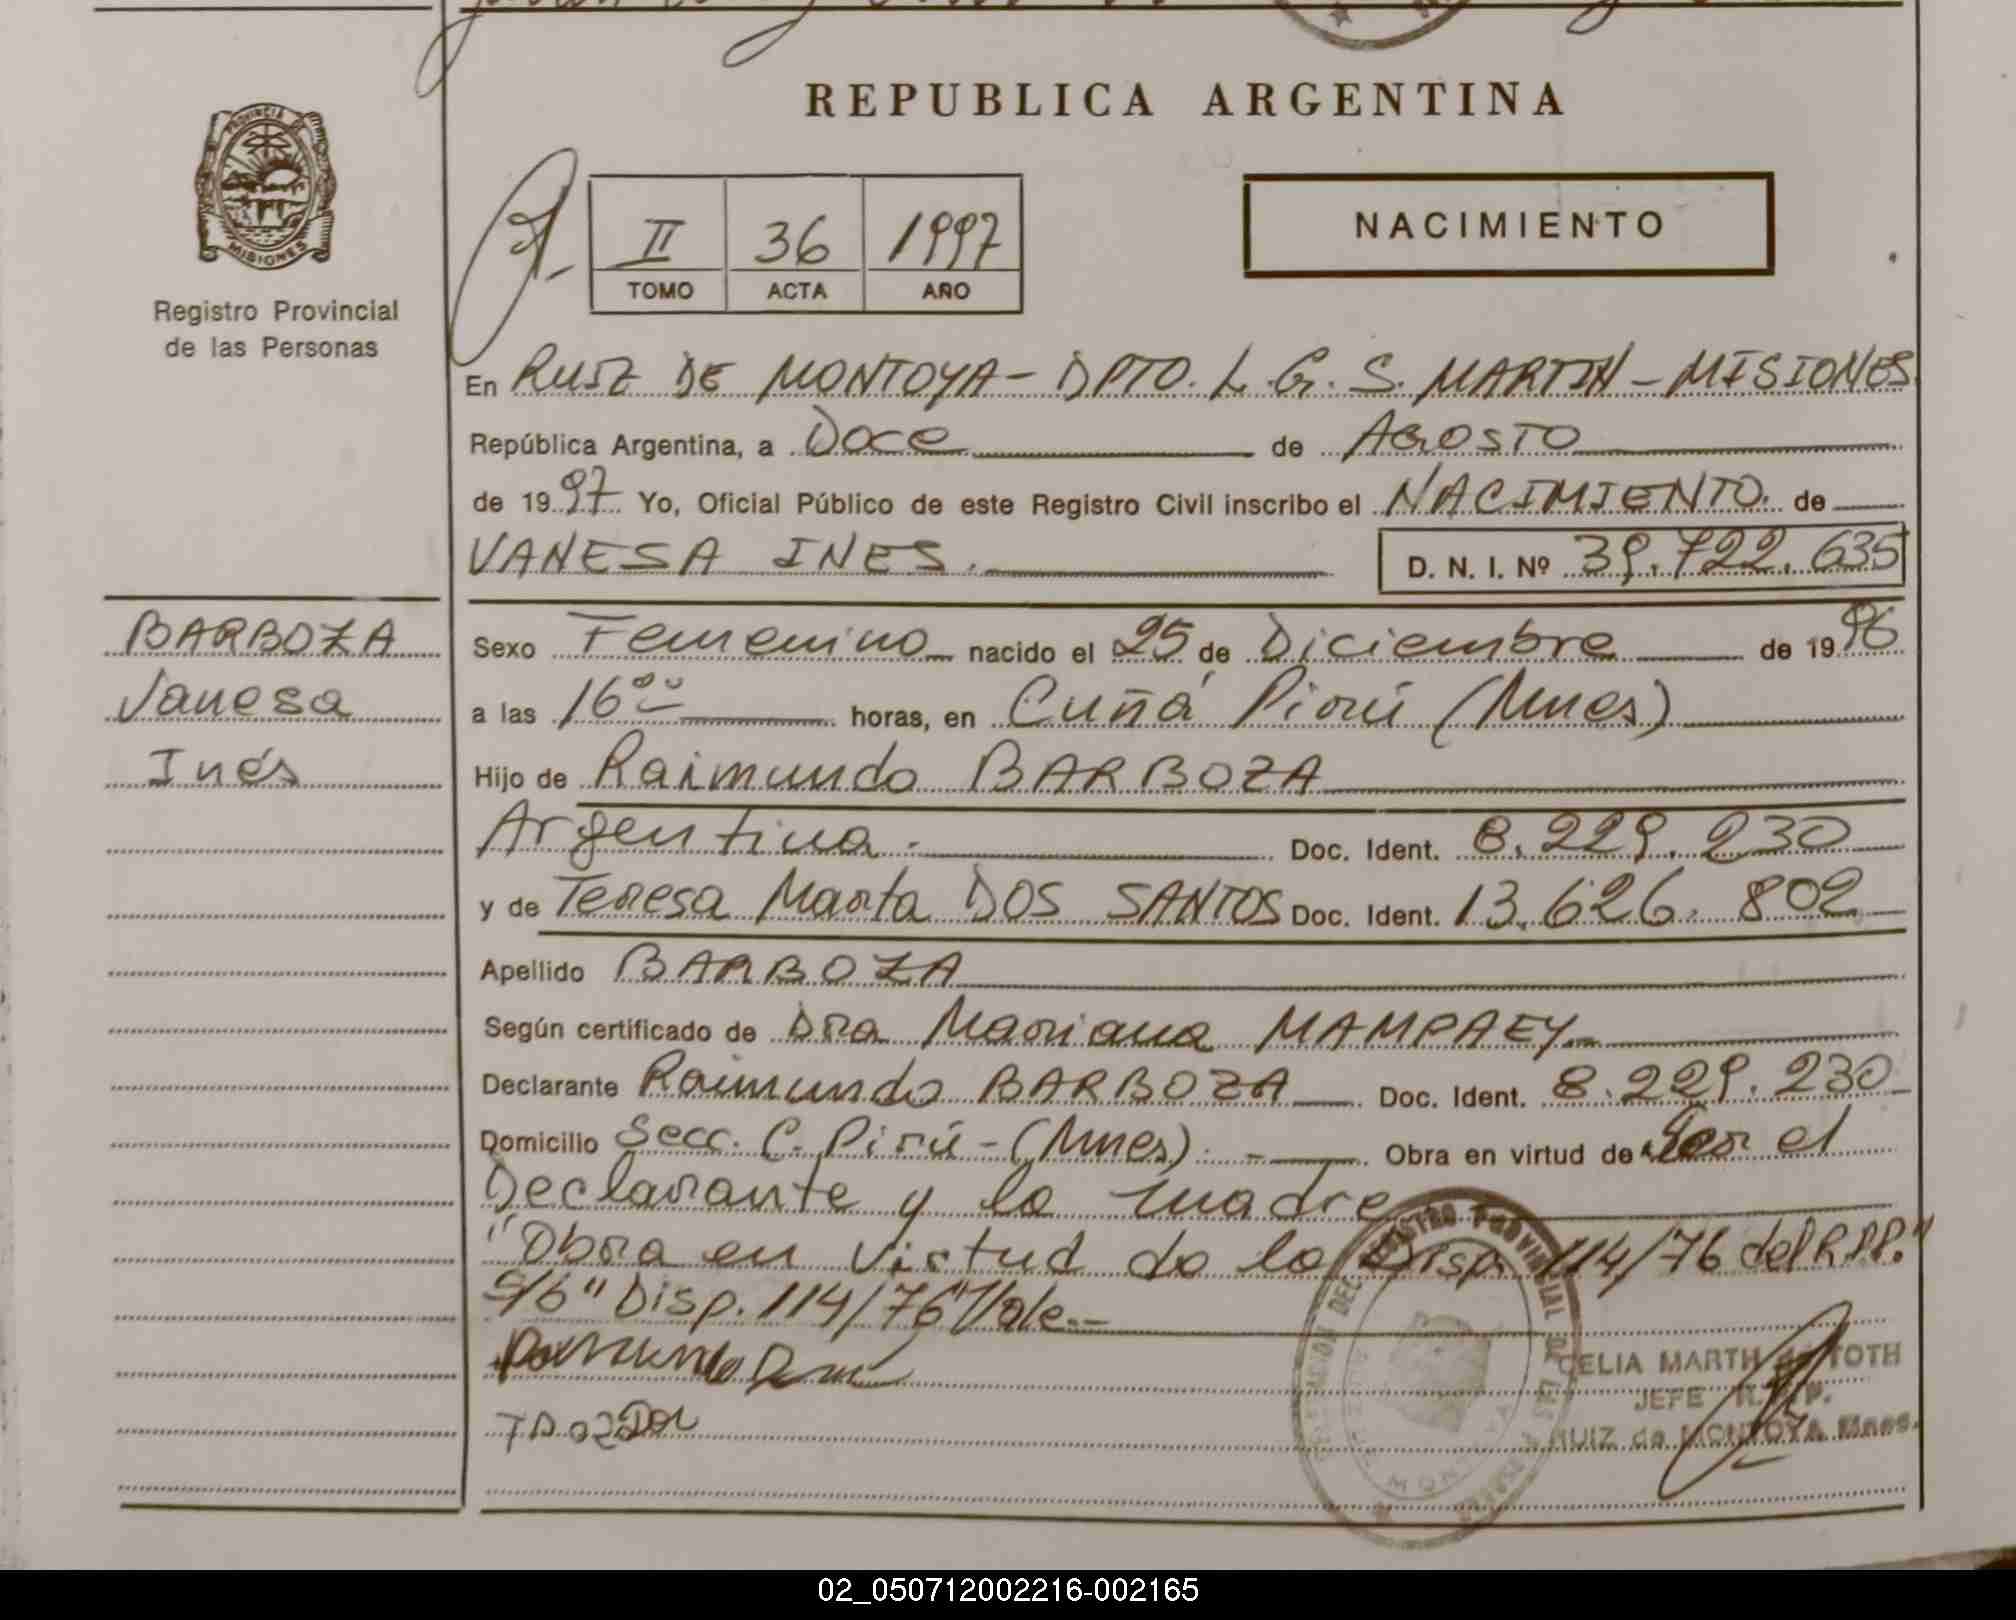 REPUBLICA ARGENTINA
PROVINCIA DE MISIONES
Registro Provincial
de las Personas
II 36 1997
TOMO ACTA AÑO
NACIMIENTO
En RUIZ DE MONTOYA - DPTO. L. G. S. MARTIN - MISIONES
República Argentina, a Doce de AGOSTO
de 1997 Yo, Oficial Público de este Registro Civil inscribo el NACIMIENTO de
VANESA INES. D. N. I. Nº 39.722.635
BARBOZA
Vanesa
Inés
Sexo Femenino nacido el 25 de Diciembre de 1996
a las 16 00 horas, en Cuñá Pirú (Mnes)
Hijo de Raimundo BARBOZA
Argentina. Doc. Ident. 8.229.230
y de Teresa Marta DOS SANTOS Doc. Ident. 13.626.802
Apellido BARBOZA
Según certificado de Dra Mariana MAMPAEY
Declarante Raimundo BARBOZA Doc. Ident. 8.229.230
Domicilio Secc. C. Pirú - (Mnes). Obra en virtud de Por el
Declarante y la madre
"Obra en virtud de la Disp. 114/76 del R.P.P."
S/b "Disp. 114/76" Vale.-
CELIA MARTH de TOTH
JEFE R. P. P.
RUIZ de MONTOYA Mnes.
DELEGACION DEL REGISTRO PROVINCIAL DE LAS PERSONAS
RUIZ DE MONTOYA
02_050712002216-002165